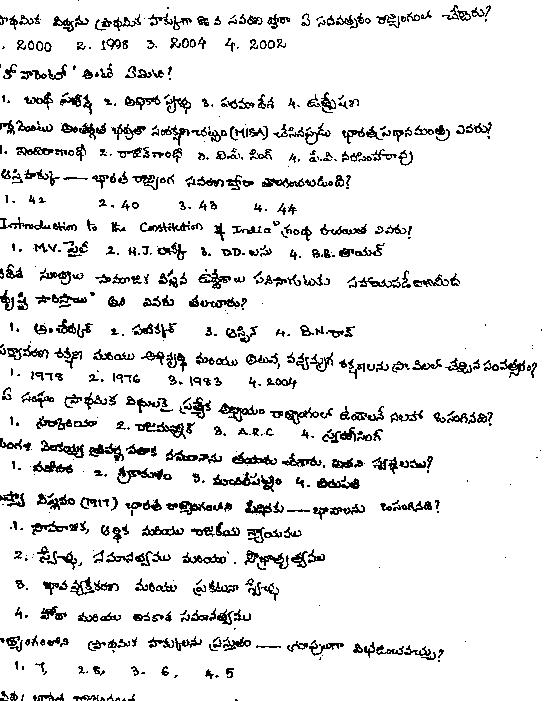 ప్రాథమిక విద్యను ప్రాథమిక హక్కుగా 86 వ సవరణ ద్వారా ఏ సంవత్సరం రాజ్యాంగంలో చేర్చారు?
1. 2000 2. 1998 3. 2004 4. 2002
'కో వారెంటో' అంటే ఏమిటి?
1. బందీ ప్రత్యక్ష 2. అధికార పృచ్ఛ 3. పరమాదేశ 4. ఉత్ప్రేషణ
అంతర్గత భద్రతా సంరక్షణ చట్టం (MISA) చేసినప్పుడు భారత ప్రధానమంత్రి ఎవరు?
1. ఇందిరాగాంధీ 2. రాజీవ్ గాంధీ 3. వి.పి. సింగ్ 4. పి.వి. నరసింహారావు
ఆస్తిహక్కు —— భారత రాజ్యాంగ సవరణ ద్వారా తొలగించబడింది?
1. 42 2. 40 3. 43 4. 44
Introduction to the Constitution of India" గ్రంథ రచయిత ఎవరు?
1. M.V. పైలీ 2. H.J. లాస్కీ 3. D.D. బసు 4. B.B. తాయల్
సూత్రాలు సామాజిక విప్లవ ఉద్దేశాలు
అని ఎవరు తెలిపారు?
1. అంబేద్కర్ 2. 3. ఆస్టిన్ 4. B.N. రావ్
పర్యావరణ రక్షణ మరియు అభివృద్ధి మరియు అటవీ, వన్యమృగ రక్షణలను ప్రా.విలలో చేర్చిన సంవత్సరం?
1. 1978 2. 1976 3. 1983 4. 2004
ఏ సంఘం ప్రాథమిక విధులకై ప్రత్యేక అధ్యాయం రాజ్యాంగంలో ఉండాలనే సలహా ఒసంగినది?
1. సర్కారియా 2. రాజమన్నార్ 3. A.R.C 4. స్వరణ్ సింగ్
పింగళి వెంకయ్య త్రివర్ణ పతాక నమూనాను తయారు చేశారు. ఇతని స్వస్థలము?
1. 2. శ్రీకాకుళం 3. మచిలీపట్నం 4. తిరుపతి
రష్యా విప్లవం (1917) భారత రాజ్యాంగంలోని పీఠికకు —— భావాలను ఒసంగినది?
1. సామాజిక, ఆర్థిక మరియు రాజకీయ న్యాయము
2. స్వేచ్ఛ, సమానత్వము మరియు సౌభ్రాతృత్వము
3. భావవ్యక్తీకరణ మరియు ప్రకటనా స్వేచ్ఛ
4. హోదా మరియు అవకాశ సమానత్వము
రాజ్యాంగంలోని ప్రాథమిక హక్కులను ప్రస్తుతం —— గ్రూపులుగా విభజించవచ్చు?
1. 7, 2. 8, 3. 6, 4. 5